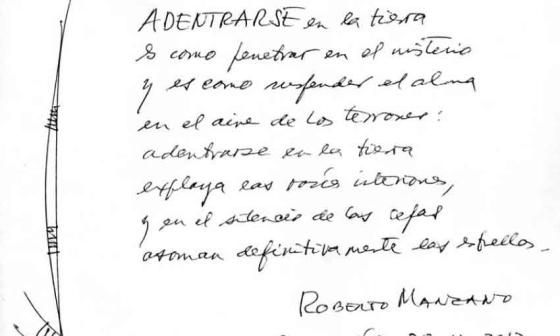 ADENTRARSE en la tierra
es como penetrar en el misterio
y es como suspender el alma
en el aire de los terrones:
adentrarse en la tierra
explaya las voces interiores,
y en el silencio de las cepas
asoman definitivamente las estrellas.
ROBERTO MANZANO